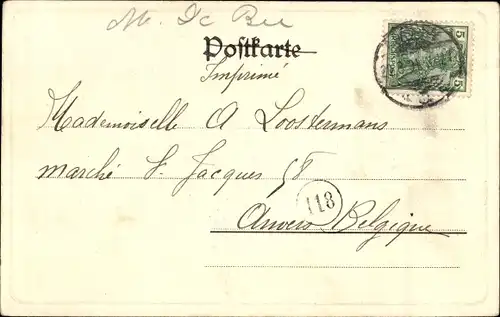 M. De Bee
Postkarte
Imprimé
5
5
Mademoiselle A Loostermans
marché S. Jacques 58
118
Anvers Belgique